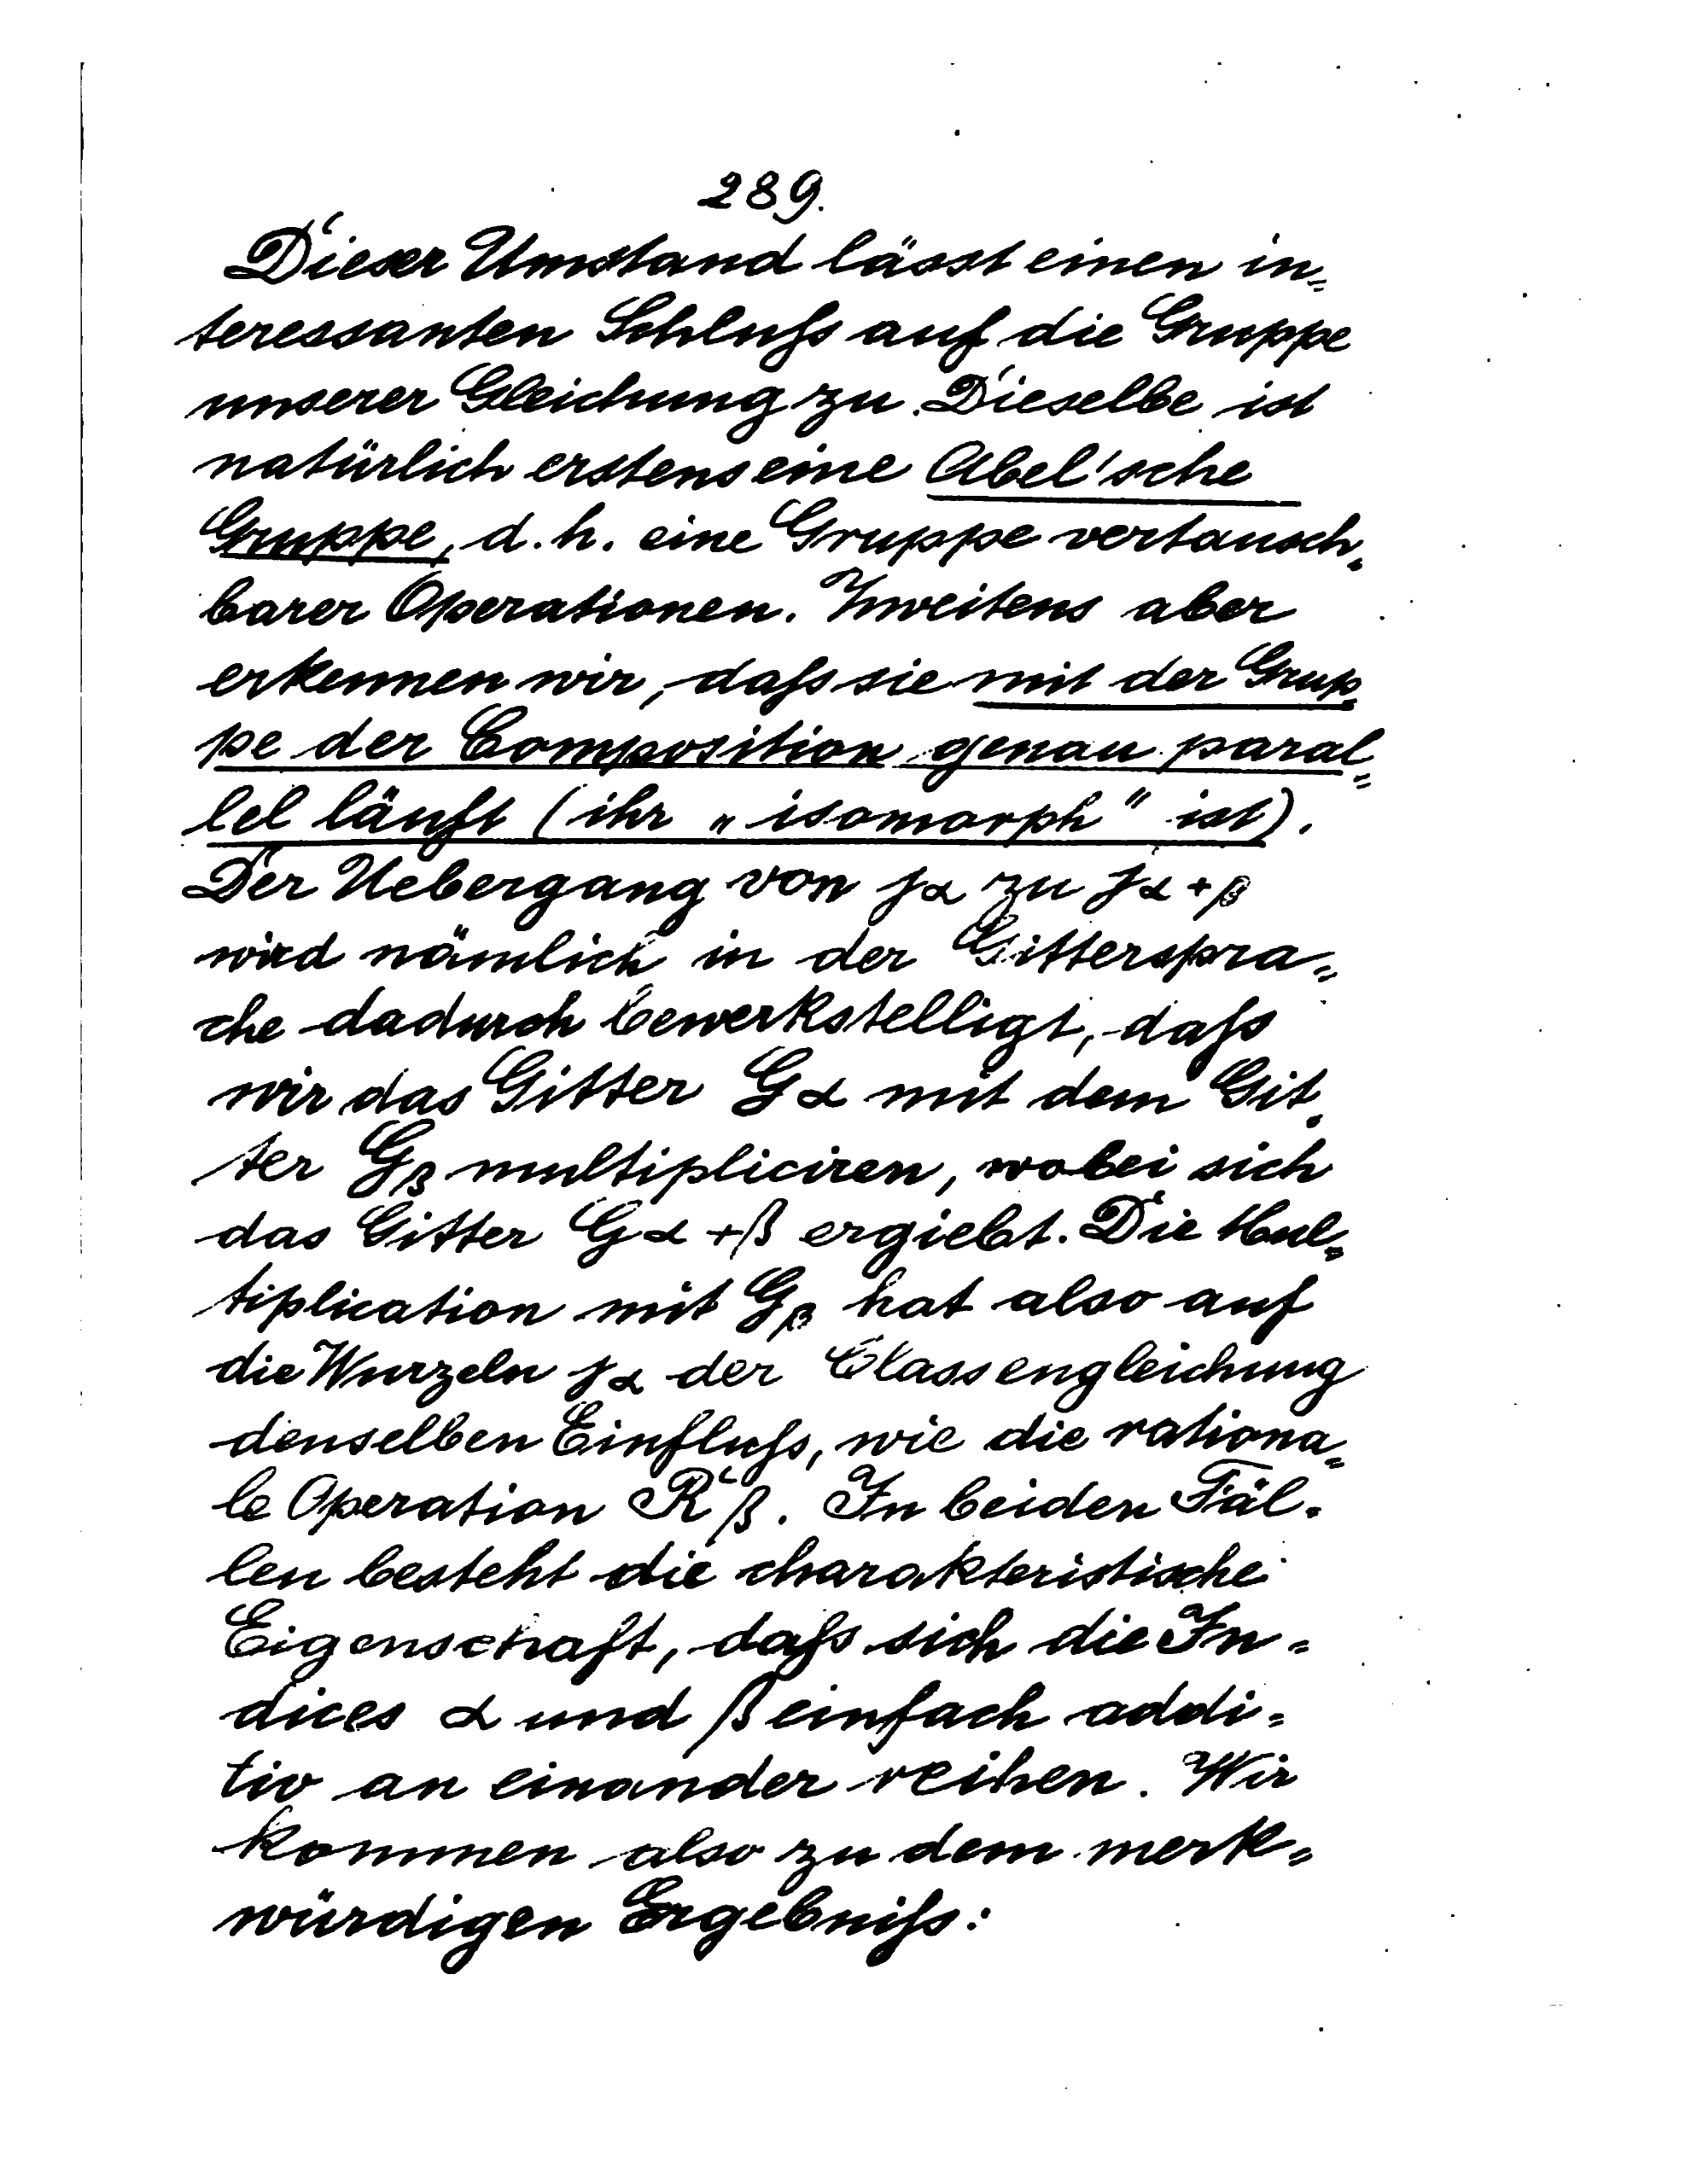 289.
Dieser Umstand lässt einen in=
teressanten Schluſs auf die Gruppe
unserer Gleichung zu. Dieselbe ist
natürlich erstens eine Abel'sche
Gruppe, d. h. eine Gruppe vertausch=
barer Operationen. Zweitens aber
erkennen wir, daſs sie mit der Grup=
pe der Composition genau paral=
lel läuft (ihr „isomorph" ist).
Der Uebergang von jα zu jα+β
wird nämlich in der Gitterspra=
che dadurch bewerkstelligt, daſs
wir das Gitter Gα mit dem Git=
ter Gβ multipliciren, wobei sich
das Gitter Gα+β ergiebt. Die Mul=
tiplication mit Gβ hat also auf
die Wurzeln jα der Classengleichung
denselben Einfluſs, wie die rationa=
le Operation Rβ. In beiden Fäl=
len besteht die charakteristische
Eigenschaft, daſs sich die In=
dices α und β einfach addi=
tiv an einander reihen. Wir
kommen also zu dem merk=
würdigen Ergebniſs: